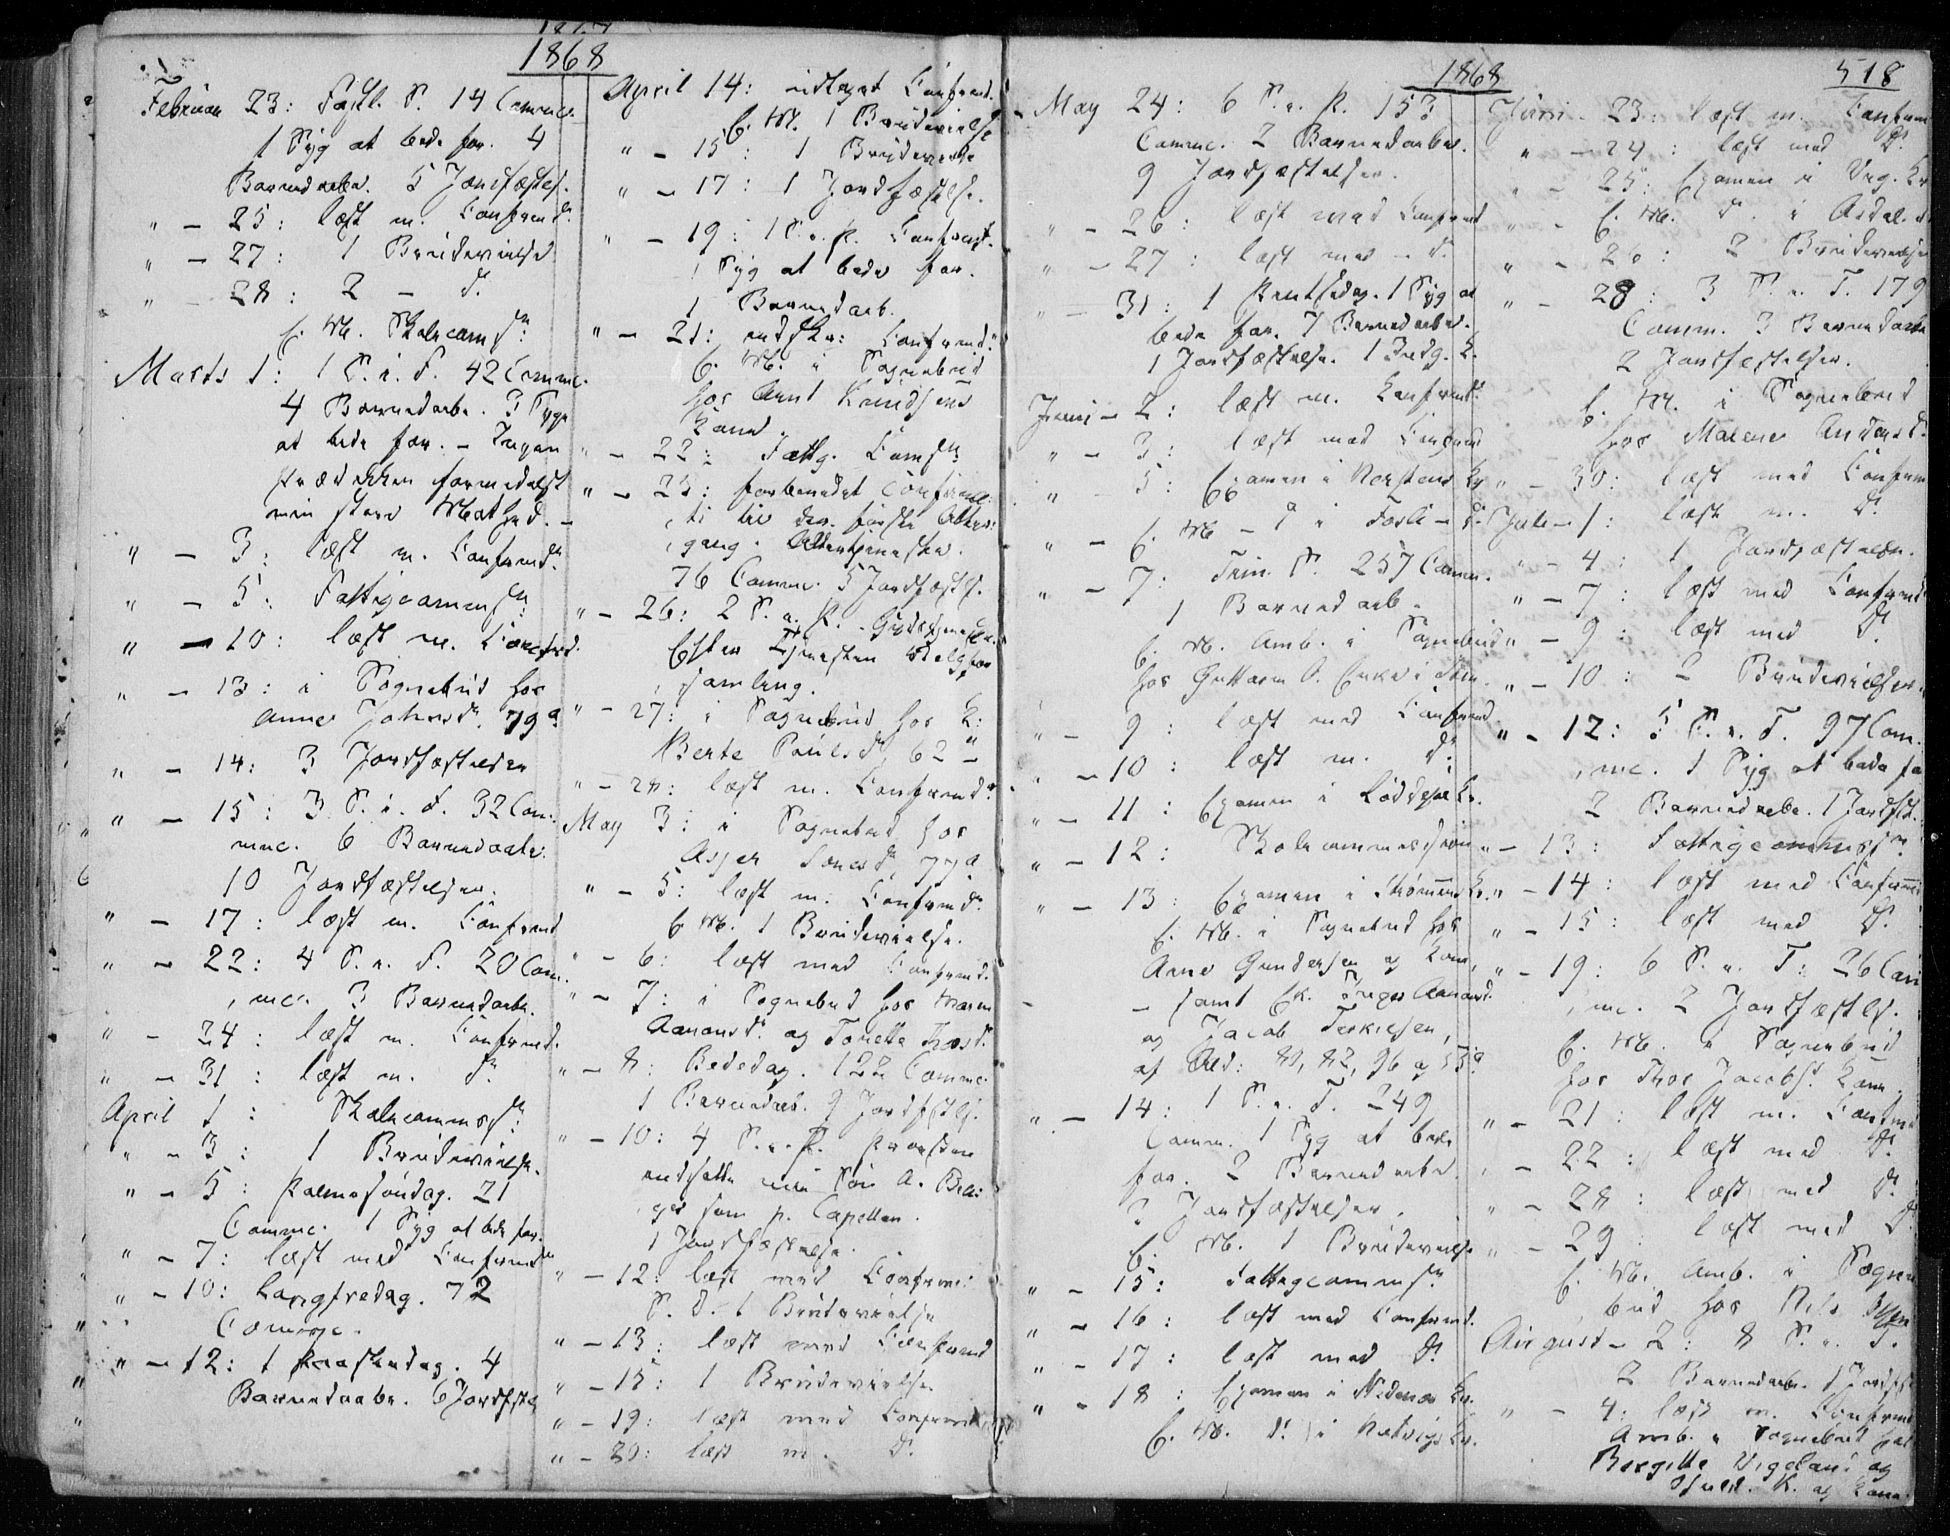 1868
Februar 23: Fastl. S. 14 Comme.
1 Syg at bede for. 4
Barnedaabe. 5 Jordfæstels.
" - 25: læst m. Confirmd.
" - 27: 1 Brudevielse
" - 28: 2 - do.
E. M. Skolecomsn:
Marts 1: 1 S. i. F. 42 Comme.
4 Barnedaabe. 3 Syge
at bede for. - Ingen
Prædikken formedelst
min store Mathed. -
" - 3: læst m. Confirmd.
" - 5: Fattigcommsn:
" - 10: læst m. Confirmd.
" - 13: i Sognebud hos
Anne Johnsdr. 79a
" - 14: 3 Jordfæstelser
" - 15: 3 S. i. F. 32 Com-
me. 6 Barnedaabe.
10 Jordfæstelser.
" - 17: læst m. Confirmd
" - 22: 4 S. i. F. 20 Com.
me. 3 Barnedaabe.
" - 24: læst m. Confirmd.
" - 31: læst m. do.
April 1: Skolecommssn:
" - 3: 1 Brudevielse.
" - 5: Palmesøndag. 21
Comme. 1 Syg at bede for.
" - 7: læst med Confirmd
" - 10: Langfredag. 72
Comme.
" - 12: 1 Paaskedag. 4
Barnedaabe. 6 Jordfstl.
April 14: udtaget Confirmd.
E. M. 1 Brudevielse
" - 15: 1 Brudevielse
" - 17: 1 Jordfæstelse.
" - 19: 1 S. e. P. Confirmat.
1 Syg at bede for.
1 Barnedaab.
" - 21: indskr: Confirmd.
E. M. i Sognebud
hos Arnt Knudsens
Kone.
" - 22: Fattg. Comsn:
" - 25: forberedet Confirme-
ti til den første Alter-
gang. Altertjeneste.
76 Comme. 5 Jordfæstls.
" - 26: 2 S. e. P.
Efter Tjenesten Valgfor-
samling.
" - 27: i Sognebud hos K:
Berte Poulsdr. 62 a
" - 28: læst m. Confirmd.
May 3: i Sognebud hos
77a
" - 5: læst m. Confirmd.
E. M. 1 Brudevielse.
" - 6: læst med Confirmd.
" - 7: i Sognebud hos Maren
Aanonsdr. og Tonette
" - 8: Bededag. 122 Comme.
1 Barnedaab. 9 Jordfstls.
" - 10: 4 S. e. P. Provsten
indsatte min Søn A.
som p. Capellan.
1 Jordfæstelse.
" - 12: læst med Confirm:
S. D. 1 Brudevielse
" - 13: læst med Confirmd
" - 15: 1 Brudevielse.
" - 19: læst med Confirmd
" - 20: læst m. do.
1868
518
May 24: 6 S. e. P. 153
Comme. 2 Barnedaaber.
9 Jordfæstelser.
" - 26: læst med Confirmd
" - 27: læst med - do.
" - 31: 1 Pintsedag. 1 Syg at
bede for. 7 Barnedaabe.
1 Jordfæstelse. 1 Indg. K.
Juni - 2: læst m. Confirmd.
" - 3: læst med Confirmd
" - 5: Examen i
" - E. M. - do i Fosli - do.
" - 7: Trin. S. 257 Comm.
1 Barnedaab.
E. M. Amb. i Sognebud
hos Guttorm O. Enke i
" - 9: læst med Confirmd
" - 10: læst m. do.
" - 11: Examen i Løddesøl Kr.
" - 12: Skolecommission
" - 13: Examen i Strømmens Kr.
E. M. i Sognebud hos
Arne Gundersen og Kone,
- samt Ek. Inger Aanonsd.
og Jacob Terkelsen,
af Ald: 82, 82, 96 og 55a
" - 14: 1 S. e. T. 249
Comm. 1 Syg at bede
for. 2 Barnedaabe.
Jordfæstelser.
E. M. 1 Brudevielse
" - 15: Fattigcommsn.
" - 16: læst med Confirmd.
" - 17: læst med do.
" - 18: Examen i Nedenæs Kr.
E. M. do. i Natvigs Kr.
Juni - 23: læst m. Confirm
" - 24: læst med do.
" - 25: Examen i
" - E. M. do. i Asdal
" - 26: 2 Brudevielser
" - 28: 3 S. e. T. 179
Comm. 3 Barnedaabe
2 Jordfæstelser.
E. M. i Sognebud
hos Malene Andersd.
" - 30: læst med Confirm
Juli - 1: læst m. do.
" - 4: 1 Jordfæstelse.
" - 7: læst med Confirmd.
" - 9: læst med do.
" - 10: 2 Brudevielser.
" - 12: 5 S. e. T. 97 Com.
me. 1 Syg at bede fo
2 Barnedaabe. 1 Jordfst.
" - 13: Fattigcommssn.
" - 14: læst med Confirmd
" - 15: læst med do.
" - 19: 6 S. e. T: 26 Com
me. 2 Jordfæstls.
E. M. i Sognebud
hos Thor Jacobs. Kone.
" - 21: læst m. Confirmd
" - 22: læst med do.
" - 28: læst med do.
" - 29: læst med do.
E. M. Amb. i Sogne-
bud hos Nils
August - 2: 8 S. e. T.
2 Barnedaab. 1 Jordfst
" - 4: læst m. Confirmd
Amb. i Sognebud hos
Bergitte Vigeland og
K. og Kone.